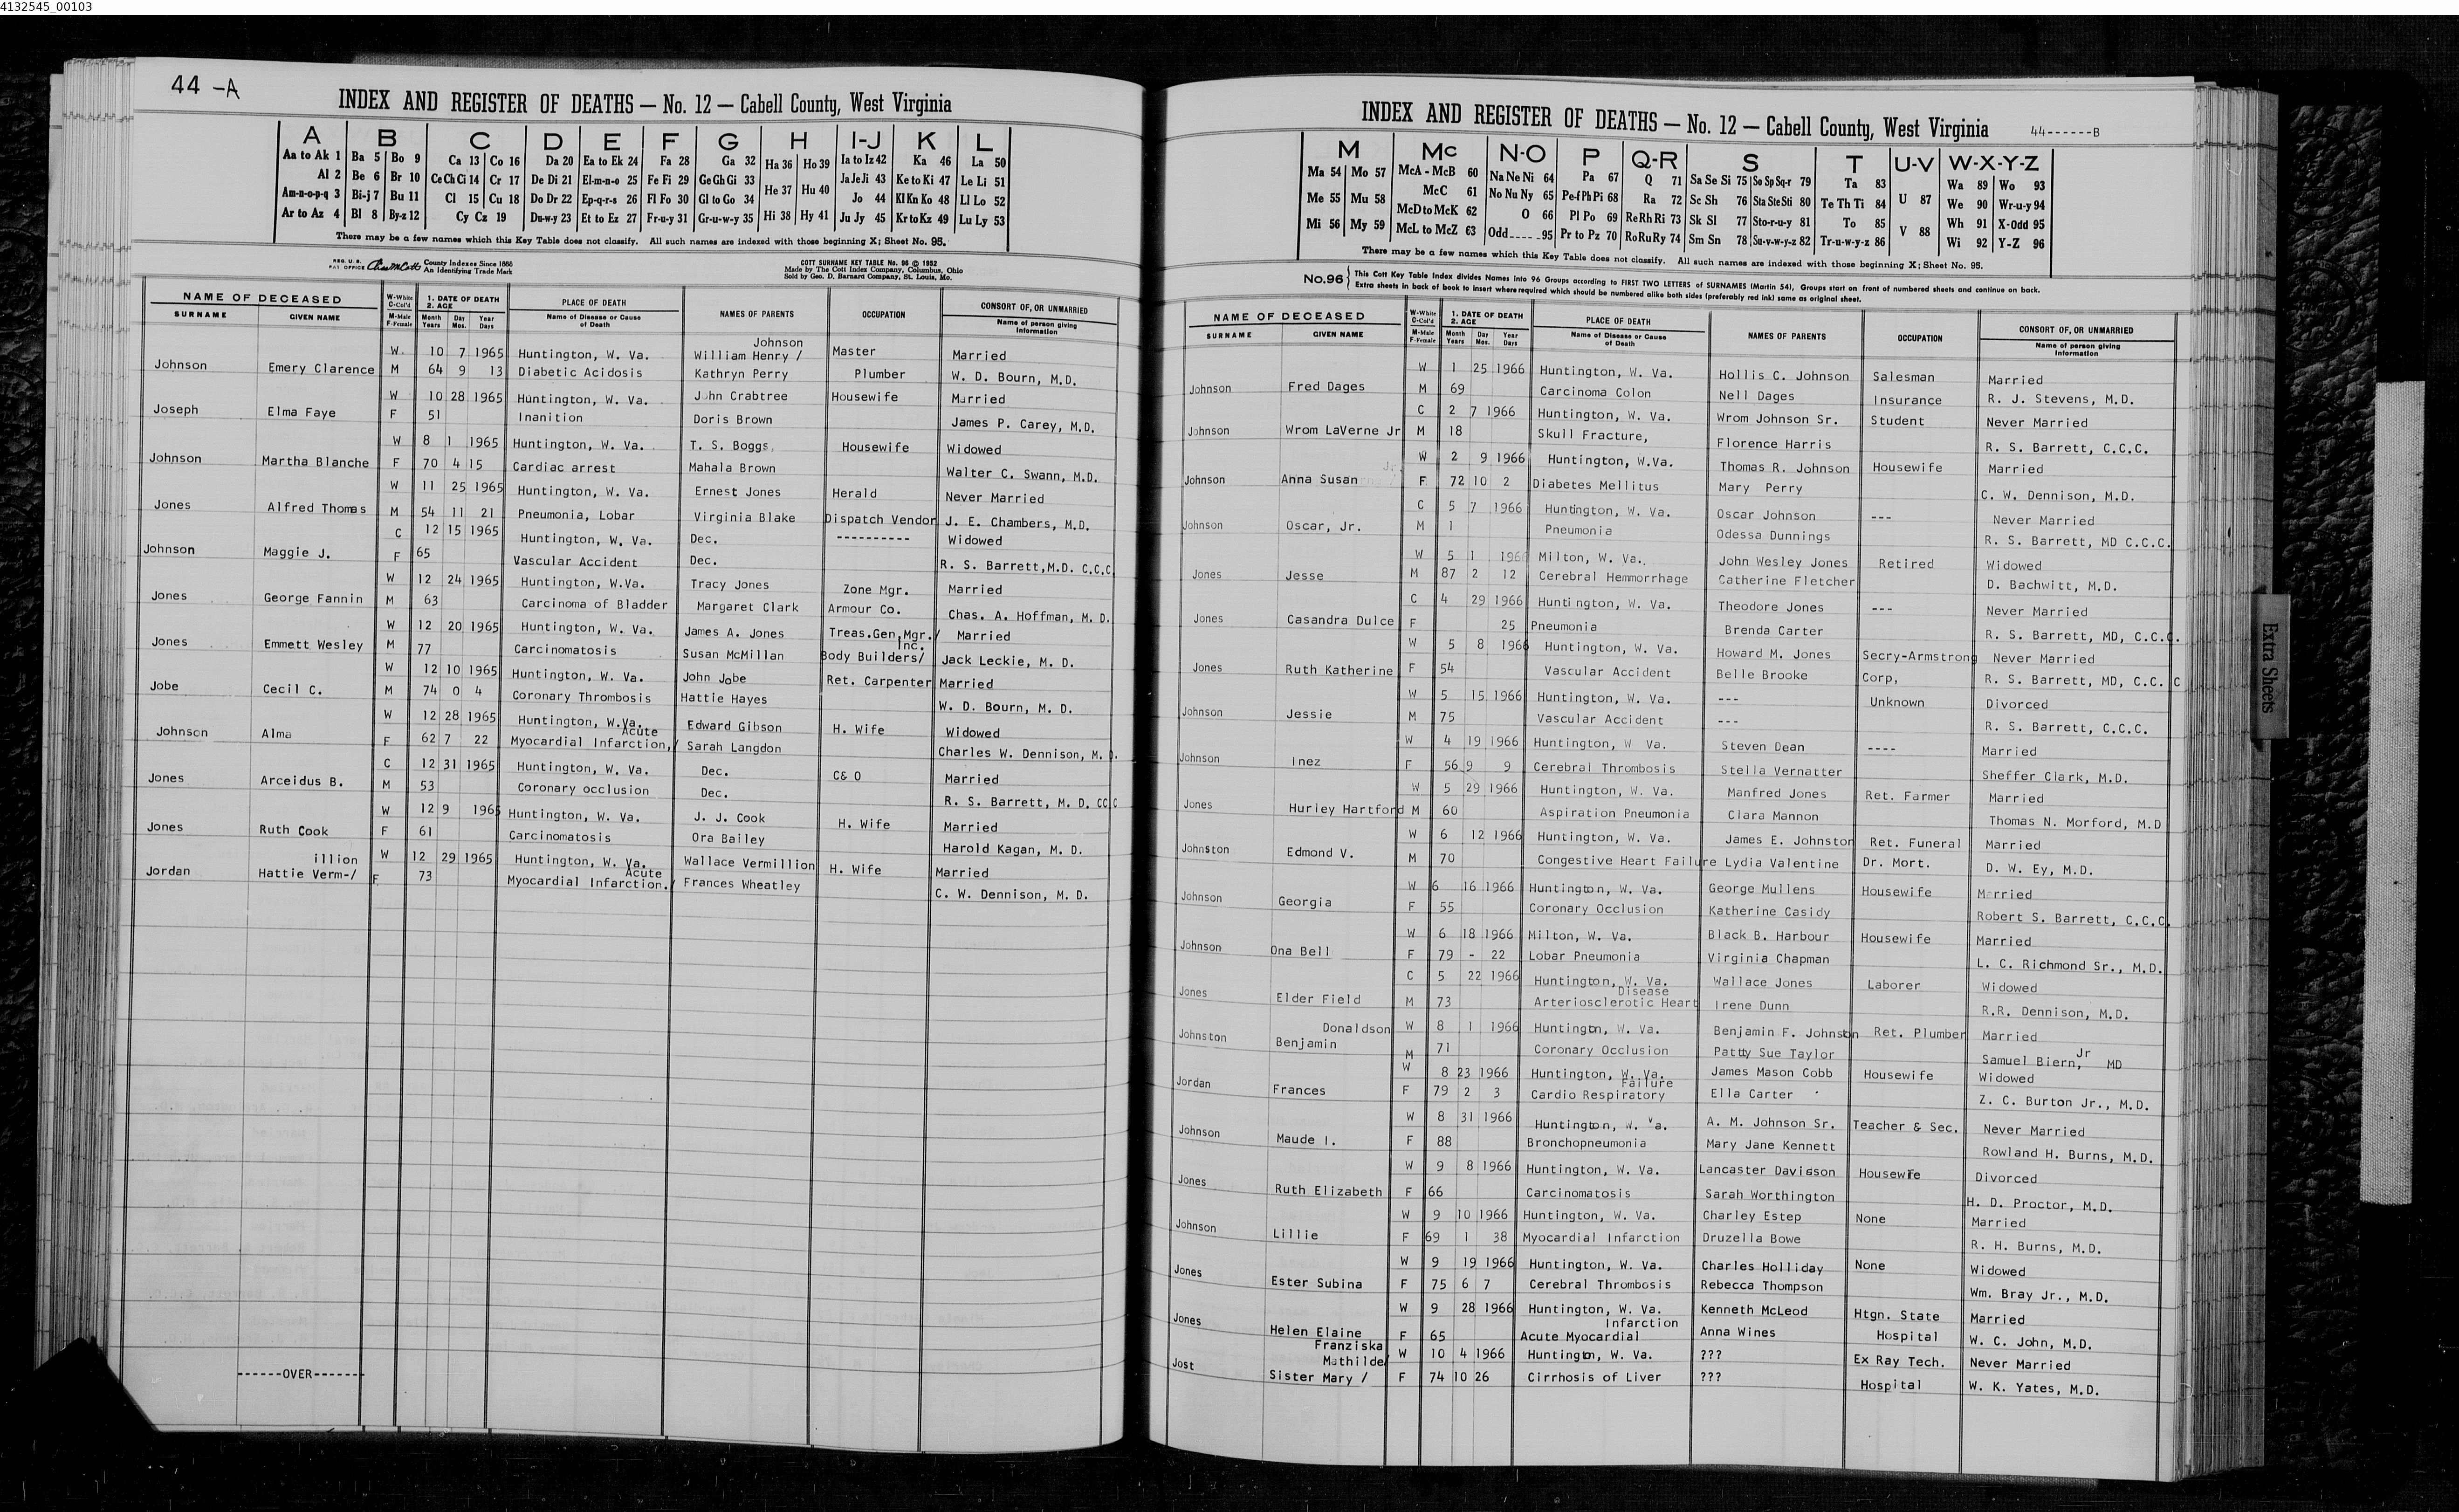 4132545_00103
44 -A
INDEX AND REGISTER OF DEATHS — No. 12 — Cabell County, West Virginia
A B C D E F G H I-J K L
Aa to Ak 1 Ba 5 Bo 9 Ca 13 Co 16 Da 20 Ea to Ek 24 Fa 28 Ga 32 Ha 36 Ho 39 Ia to Iz 42 Ka 46 La 50
Al 2 Be 6 Br 10 Ce Ch Ci 14 Cr 17 De Di 21 El-m-n-o 25 Fe Fi 29 Ge Gh Gi 33 He 37 Hu 40 Ja Je Ji 43 Ke to Ki 47 Le Li 51
Am-n-o-p-q 3 Bi-j 7 Bu 11 Cl 15 Cu 18 Do Dr 22 Ep-q-r-s 26 Fl Fo 30 Gl to Go 34 Jo 44 Kl Kn Ko 48 Ll Lo 52
Ar to Az 4 Bl 8 By-z 12 Cy Cz 19 Du-w-y 23 Et to Ez 27 Fr-u-y 31 Gr-u-w-y 35 Hi 38 Hy 41 Ju Jy 45 Kr to Kz 49 Lu Ly 53
There may be a few names which this Key Table does not classify. All such names are indexed with those beginning X; Sheet No. 95.
REG. U. S. PAT OFFICE County Indexes Since 1888 An Identifying Trade Mark
COTT SURNAME KEY TABLE No. 96 © 1952
Made by The Cott Index Company, Columbus, Ohio
Sold by Geo. D. Barnard Company, St. Louis, Mo.
NAME OF DECEASED W-White C-Col'd 1. DATE OF DEATH 2. AGE PLACE OF DEATH NAMES OF PARENTS OCCUPATION CONSORT OF, OR UNMARRIED
SURNAME GIVEN NAME M-Male F-Female Month Years Day Mos. Year Days Name of Disease or Cause of Death Name of person giving Information
Johnson
W. 10 7 1965 Huntington, W. Va. William Henry / Master Married
Johnson Emery Clarence M 64 9 13 Diabetic Acidosis Kathryn Perry Plumber W. D. Bourn, M.D.
W 10 28 1965 Huntington, W. Va. John Crabtree Housewife Married
Joseph Elma Faye F 51 Inanition Doris Brown James P. Carey, M.D.
W 8 1 1965 Huntington, W. Va. T. S. Boggs, Housewife Widowed
Johnson Martha Blanche F 70 4 15 Cardiac arrest Mahala Brown Walter C. Swann, M.D.
W 11 25 1965 Huntington, W. Va. Ernest Jones Herald Never Married
Jones Alfred Thomas M 54 11 21 Pneumonia, Lobar Virginia Blake Dispatch Vendor J. E. Chambers, M.D.
C 12 15 1965 Huntington, W. Va. Dec. ---------- Widowed
Johnson Maggie J. F 65 Vascular Accident Dec. R. S. Barrett,M.D. C.C.C
W 12 24 1965 Huntington, W.Va. Tracy Jones Zone Mgr. Married
Jones George Fannin M 63 Carcinoma of Bladder Margaret Clark Armour Co. Chas. A. Hoffman, M. D.
W 12 20 1965 Huntington, W. Va. James A. Jones Treas.Gen.Mgr./ Married
Inc.
Jones Emmett Wesley M 77 Carcinomatosis Susan McMillan Body Builders/ Jack Leckie, M. D.
W 12 10 1965 Huntington, W. Va. John Jobe Ret. Carpenter Married
Jobe Cecil C. M 74 0 4 Coronary Thrombosis Hattie Hayes W. D. Bourn, M. D.
W 12 28 1965 Huntington, W.Va. Edward Gibson H. Wife Widowed
Acute
Johnson Alma F 62 7 22 Myocardial Infarction,/ Sarah Langdon Charles W. Dennison, M. D.
C 12 31 1965 Huntington, W. Va. Dec. C& O Married
Jones Arceidus B. M 53 Coronary occlusion Dec. R. S. Barrett, M. D. CC C
W 12 9 1965 Huntington, W. Va. J. J. Cook H. Wife Married
Jones Ruth Cook F 61 Carcinomatosis Ora Bailey Harold Kagan, M. D.
illion W 12 29 1965 Huntington, W. Va. Wallace Vermillion H. Wife Married
Acute
Jordan Hattie Verm-/ F 73 Myocardial Infarction./ Frances Wheatley C. W. Dennison, M. D.
------OVER-------
INDEX AND REGISTER OF DEATHS — No. 12 — Cabell County, West Virginia 44------B
M Mc N-O P Q-R S T U-V W-X-Y-Z
Ma 54 Mo 57 McA - McB 60 Na Ne Ni 64 Pa 67 Q 71 Sa Se Si 75 So Sp Sq-r 79 Ta 83 U 87 Wa 89 Wo 93
Me 55 Mu 58 McC 61 No Nu Ny 65 Pe-f Ph Pi 68 Ra 72 Sc Sh 76 Sta Ste Sti 80 Te Th Ti 84 We 90 Wr-u-y 94
McD to McK 62 O 66 Pl Po 69 Re Rh Ri 73 Sk Sl 77 Sto-r-u-y 81 To 85 V 88 Wh 91 X-Odd 95
Mi 56 My 59 McL to McZ 63 Odd_____95 Pr to Pz 70 Ro Ru Ry 74 Sm Sn 78 Su-v-w-y-z 82 Tr-u-w-y-z 86 Wi 92 Y-Z 96
There may be a few names which this Key Table does not classify. All such names are indexed with those beginning X; Sheet No. 95.
No.96 This Cott Key Table Index divides Names into 96 Groups according to FIRST TWO LETTERS of SURNAMES (Martin 54), Groups start on front of numbered sheets and continue on back.
Extra sheets in back of book to insert where required which should be numbered alike both sides (preferably red ink) same as original sheet.
NAME OF DECEASED W-White C-Col'd 1. DATE OF DEATH 2. AGE PLACE OF DEATH NAMES OF PARENTS OCCUPATION CONSORT OF, OR UNMARRIED
SURNAME GIVEN NAME M-Male F-Female Month Years Day Mos. Year Days Name of Disease or Cause of Death Name of person giving Information
W 1 25 1966 Huntington, W. Va. Hollis C. Johnson Salesman Married
Johnson Fred Dages M 69 Carcinoma Colon Nell Dages Insurance R. J. Stevens, M.D.
C 2 7 1966 Huntington, W. Va. Wrom Johnson Sr. Student Never Married
Johnson Wrom LaVerne Jr M 18 Skull Fracture, Florence Harris R. S. Barrett, C.C.C.
W 2 9 1966 Huntington, W.Va. Thomas R. Johnson Housewife Married
Johnson Anna Susan F 72 10 2 Diabetes Mellitus Mary Perry C. W. Dennison, M.D.
C 5 7 1966 Huntington, W. Va. Oscar Johnson --- Never Married
Johnson Oscar, Jr. M 1 Pneumonia Odessa Dunnings R. S. Barrett, MD C.C.C.
W 5 1 1966 Milton, W. Va.. John Wesley Jones Retired Widowed
Jones Jesse M 87 2 12 Cerebral Hemmorrhage Catherine Fletcher D. Bachwitt, M.D.
C 4 29 1966 Huntington, W. Va. Theodore Jones --- Never Married
Jones Casandra Dulce F 25 Pneumonia Brenda Carter R. S. Barrett, MD, C.C.C.
W 5 8 1966 Huntington, W. Va. Howard M. Jones Secry-Armstrong Never Married
Jones Ruth Katherine F 54 Vascular Accident Belle Brooke Corp, R. S. Barrett, MD, C.C. C
W 5 15 1966 Huntington, W. Va. --- Unknown Divorced
Johnson Jessie M 75 Vascular Accident --- R. S. Barrett, C.C.C.
W 4 19 1966 Huntington, W Va. Steven Dean ---- Married
Johnson Inez F 56 9 9 Cerebral Thrombosis Stella Vernatter Sheffer Clark, M.D.
W 5 29 1966 Huntington, W. Va. Manfred Jones Ret. Farmer Married
Jones Hurley Hartford M 60 Aspiration Pneumonia Clara Mannon Thomas N. Morford, M.D
W 6 12 1966 Huntington, W. Va. James E. Johnston Ret. Funeral Married
Johnston Edmond V. M 70 Congestive Heart Failure Lydia Valentine Dr. Mort. D. W. Ey, M.D.
W 6 16 1966 Huntington, W. Va. George Mullens Housewife Married
Johnson Georgia F 55 Coronary Occlusion Katherine Casidy Robert S. Barrett, C.C.C.
W 6 18 1966 Milton, W. Va. Black B. Harbour Housewife Married
Johnson Ona Bell F 79 - 22 Lobar Pneumonia Virginia Chapman L. C. Richmond Sr., M.D.
C 5 22 1966 Huntington, W. Va. Wallace Jones Laborer Widowed
Disease
Jones Elder Field M 73 Arteriosclerotic Heart Irene Dunn R.R. Dennison, M.D.
Donaldson W 8 1 1966 Huntington, W. Va. Benjamin F. Johnston Ret. Plumber Married
Johnston Benjamin M 71 Coronary Occlusion Pattty Sue Taylor Samuel Biern, Jr MD
W 8 23 1966 Huntington, W. Va. James Mason Cobb Housewife Widowed
Failure
Jordan Frances F 79 2 3 Cardio Respiratory Ella Carter Z. C. Burton Jr., M.D.
W 8 31 1966 Huntington, W. Va. A. M. Johnson Sr. Teacher & Sec. Never Married
Johnson Maude I. F 88 Bronchopneumonia Mary Jane Kennett Rowland H. Burns, M.D.
W 9 8 1966 Huntington, W. Va. Lancaster Davidson Housewife Divorced
Jones Ruth Elizabeth F 66 Carcinomatosis Sarah Worthington H. D. Proctor, M.D.
W 9 10 1966 Huntington, W. Va. Charley Estep None Married
Johnson Lillie F 69 1 38 Myocardial Infarction Druzella Bowe R. H. Burns, M.D.
W 9 19 1966 Huntington, W. Va. Charles Holliday None Widowed
Jones Ester Subina F 75 6 7 Cerebral Thrombosis Rebecca Thompson Wm. Bray Jr., M.D.
W 9 28 1966 Huntington, W. Va. Kenneth McLeod Htgn. State Married
Infarction
Jones Helen Elaine F 65 Acute Myocardial Anna Wines Hospital W. C. John, M.D.
Franziska
Mathilde/ W 10 4 1966 Huntington, W. Va. ??? Ex Ray Tech. Never Married
Jost Sister Mary / F 74 10 26 Cirrhosis of Liver ??? Hospital W. K. Yates, M.D.
Extra Sheets